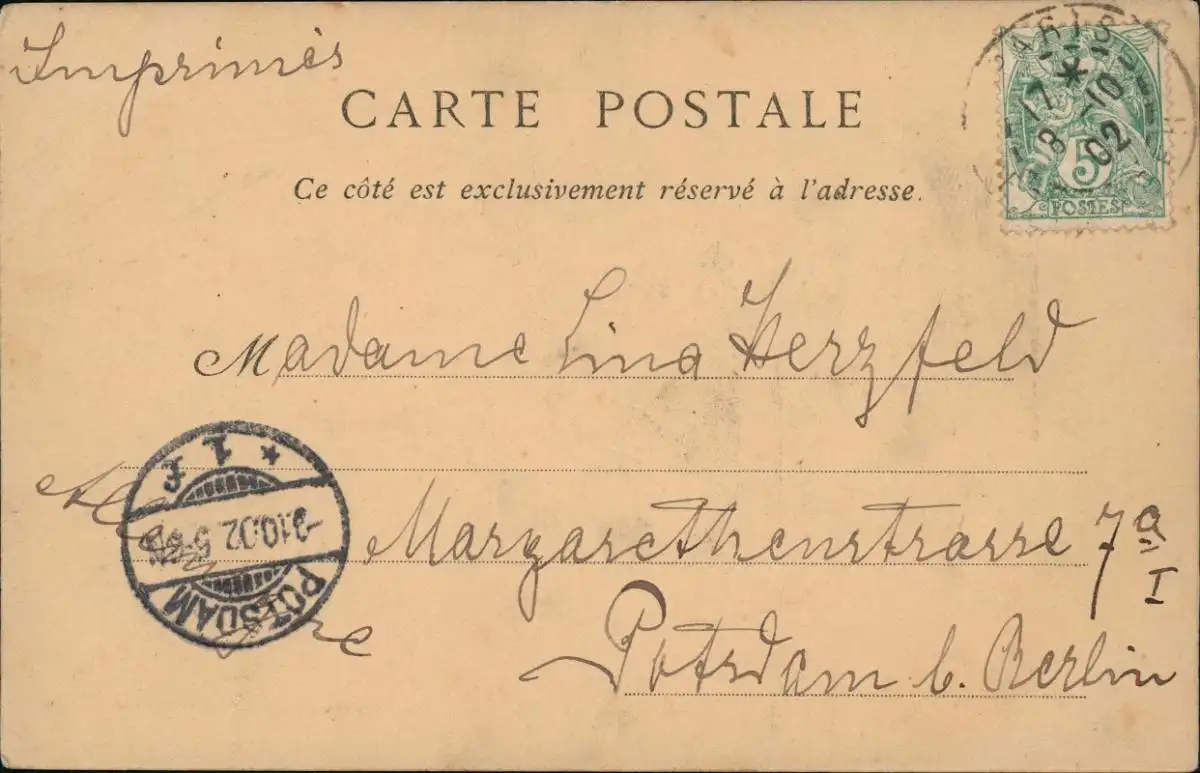 Imprimés
CARTE POSTALE
Ce côté est exclusivement réservé à l'adresse.
PARIS
17
8 -10
02
5
POSTES
Madame Lina Herzfeld
* 1. f.
9.10.02. 5-
POTSDAM
Margarethenstrasse 7a
I
Potsdam b. Berlin